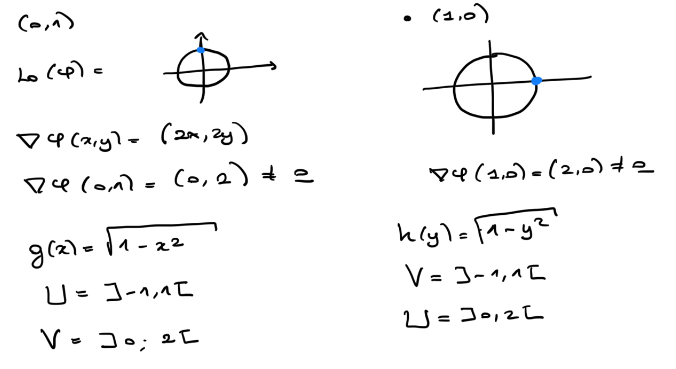 (0,1)
L₀(φ) =
∇φ(x,y) = (2x, 2y)
∇φ(0,1) = (0,2) ≠ 0
g(x) = √(1 - x²)
U = ]-1,1[
V = ]0; 2[
• (1,0)
∇φ(1,0) = (2,0) ≠ 0
h(y) = √(1 - y²)
V = ]-1,1[
U = ]0,2[